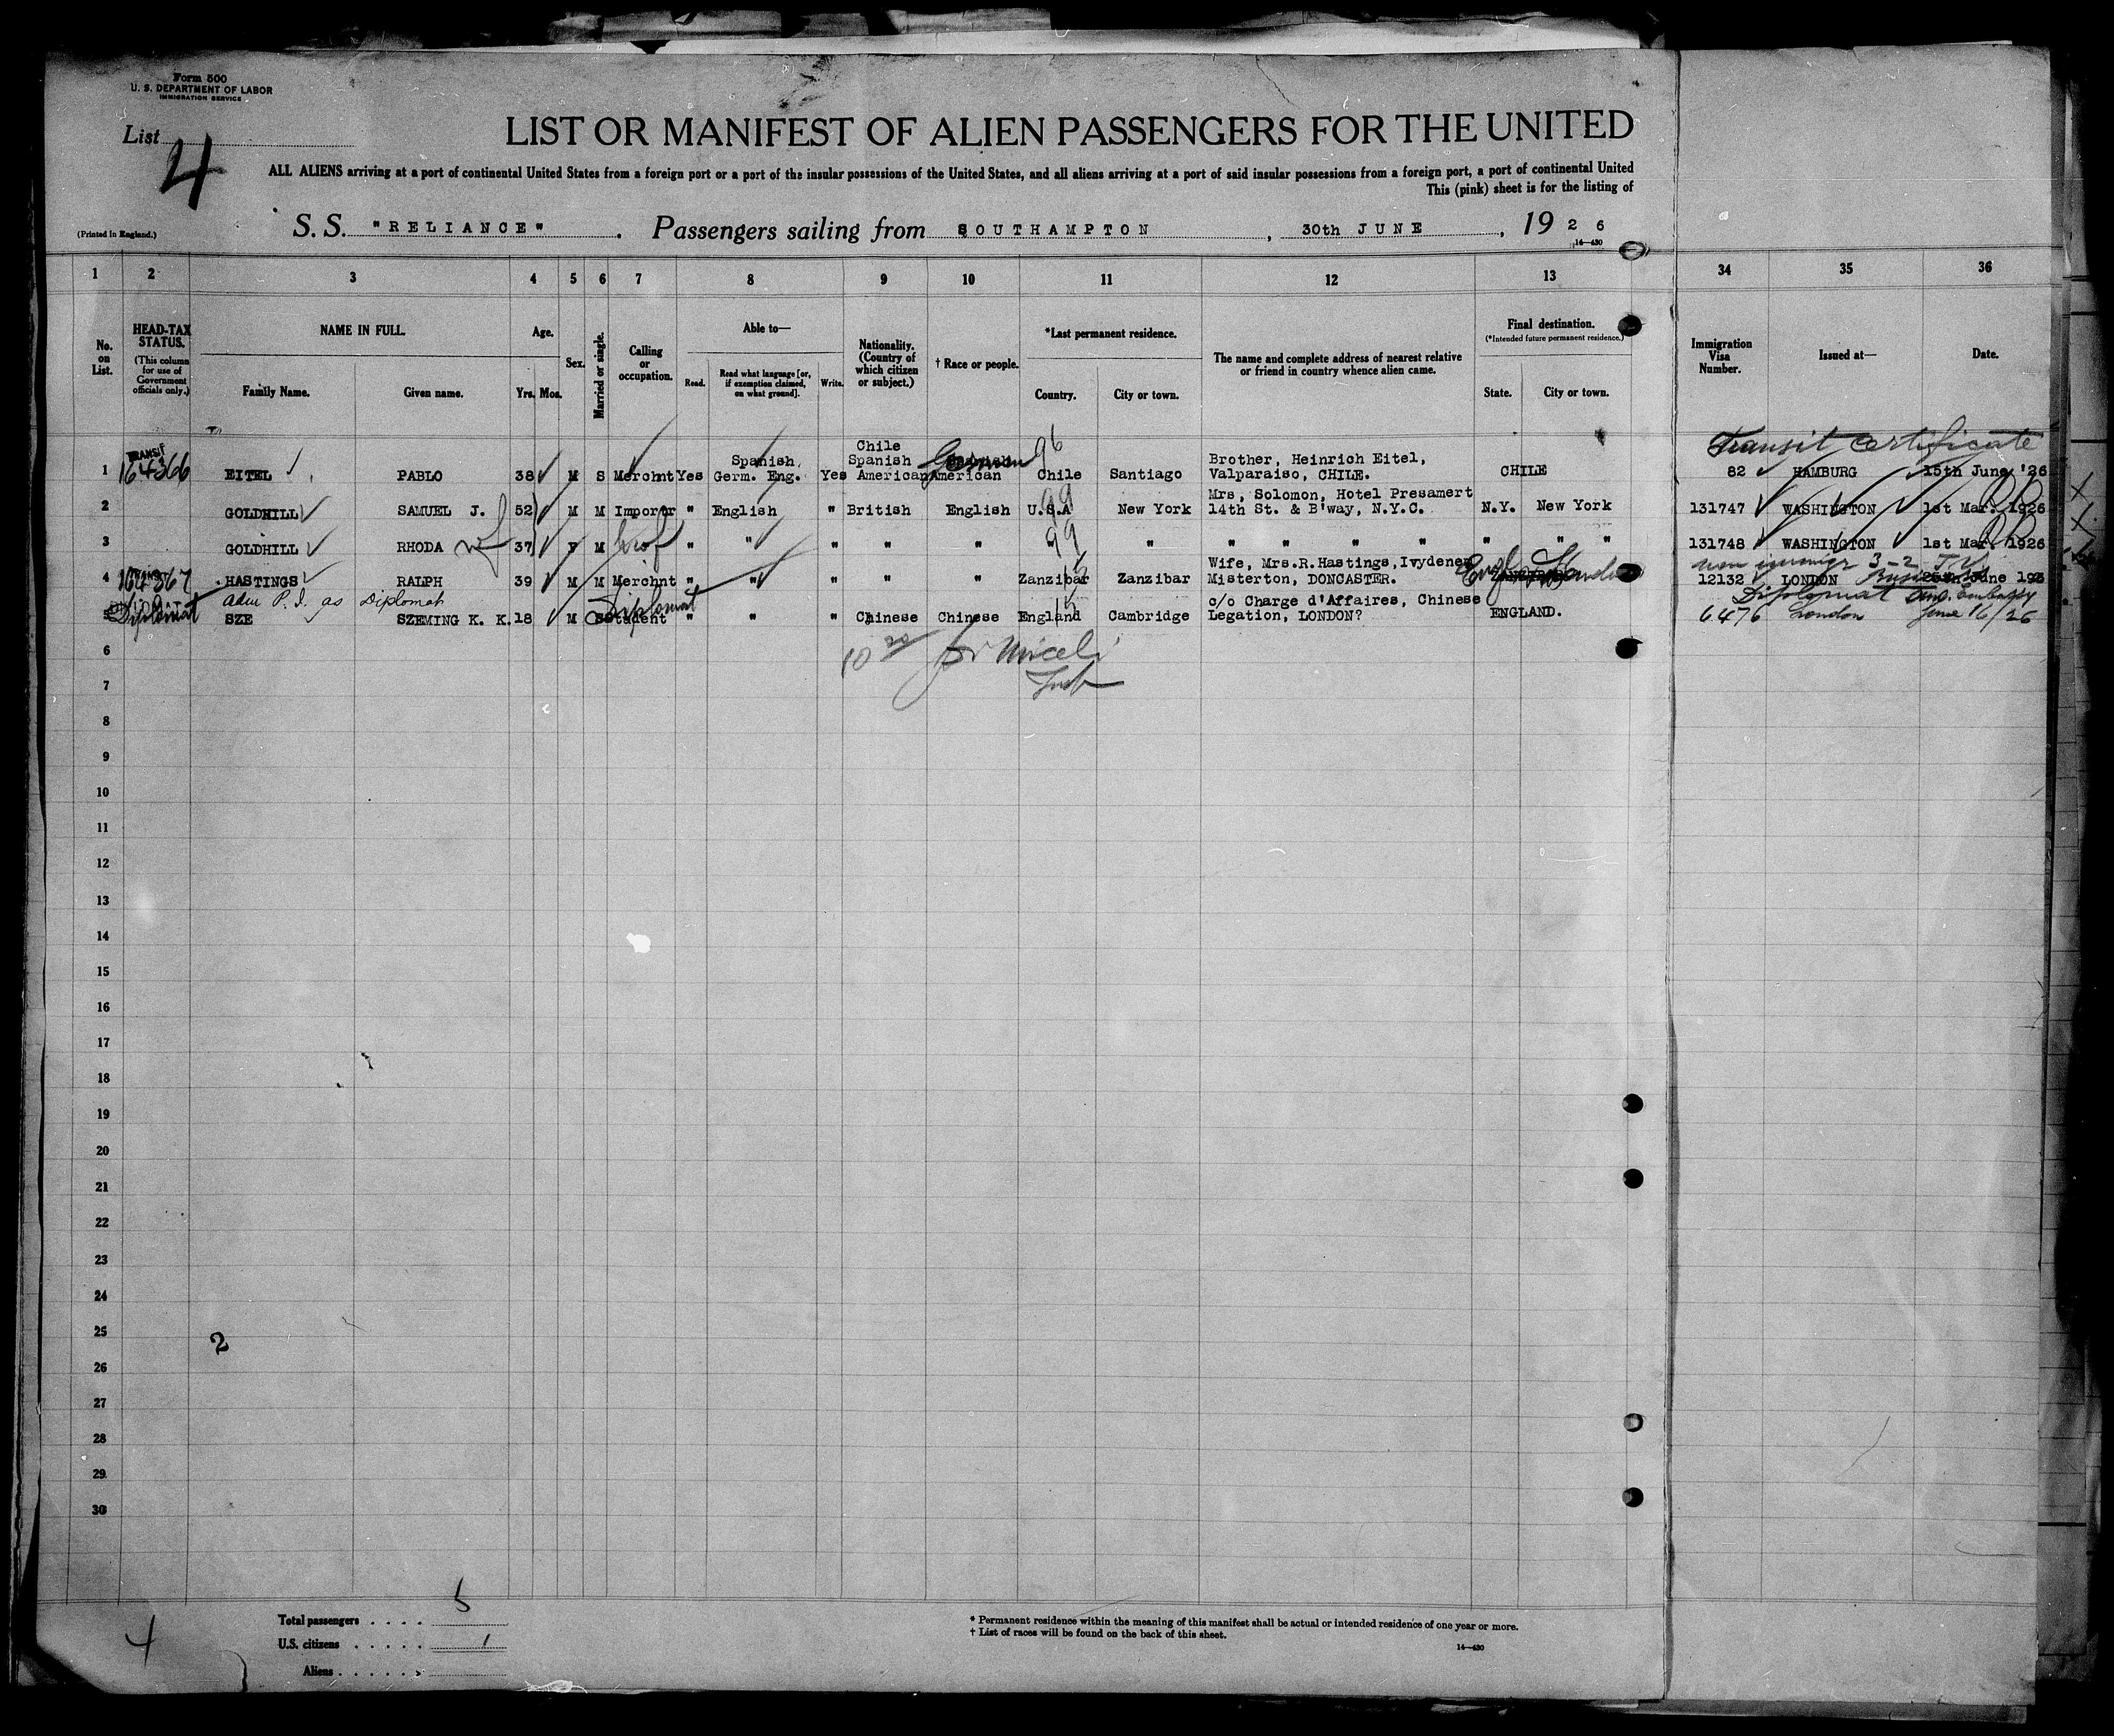 Form 500
U. S. DEPARTMENT OF LABOR
IMMIGRATION SERVICE
List 4
LIST OR MANIFEST OF ALIEN PASSENGERS FOR THE UNITED
ALL ALIENS arriving at a port of continental United States from a foreign port or a port of the insular possessions of the United States, and all aliens arriving at a port of said insular possessions from a foreign port, a port of continental United
This (pink) sheet is for the listing of
(Printed in England.)
S. S. "RELIANCE" . Passengers sailing from SOUTHAMPTON , 30th JUNE , 19 2 6
14—430
1 2 3 4 5 6 7 8 9 10 11 12 13 34 35 36
No. on List.
HEAD-TAX STATUS. (This column for use of Government officials only.)
NAME IN FULL.
Family Name. Given name.
Age.
Yrs. Mos.
Sex.
Married or single.
Calling or occupation.
Able to—
Read. Read what language [or, if exemption claimed, on what ground]. Write.
Nationality. (Country of which citizen or subject.)
† Race or people.
*Last permanent residence.
Country. City or town.
The name and complete address of nearest relative or friend in country whence alien came.
Final destination.
(*Intended future permanent residence.)
State. City or town.
Immigration Visa Number.
Issued at—
Date.
Transit Certificate
1 TRANSIT 164366 EITEL PABLO 38 M S Merchnt Yes Spanish, Germ. Eng. Yes Chile Spanish American German American 96 Chile Santiago Brother, Heinrich Eitel, Valparaiso, CHILE. CHILE 82 HAMBURG 15th June '26
2 GOLDHILL SAMUEL J. 52 M M Imporpr " English " British English 99 U.S.A New York Mrs, Solomon, Hotel Presamert 14th St. & B'way, N.Y.C. N.Y. New York 131747 WASHINGTON 1st Mar. 1926
3 GOLDHILL RHODA wf 37 F M " " " " " 99 " " " " " " " " " " 131748 WASHINGTON 1st Mar. 1926
4 164367 HASTINGS RALPH 39 M M Merchnt " " " " " Zanzibar Zanzibar Wife, Mrs.R.Hastings,Ivydene, Misterton, DONCASTER. non immigr 3-2 12132 LONDON June 192
adm P.I. as Diplomat
Diplomat SZE SZEMING K. K. 18 M S Student Diplomat " " " Chinese Chinese 15 England Cambridge c/o Charge d'Affaires, Chinese Legation, LONDON? ENGLAND. Diplomat Am. Embassy 6476 London June 16/26
6
7
8
9
10
11
12
13
14
15
16
17
18
19
20
21
22
23
24
25
2
26
27
28
29
30
4
Total passengers . . . . 5
U.S. citizens . . . . . /
Aliens . . . . . .
* Permanent residence within the meaning of this manifest shall be actual or intended residence of one year or more.
† List of races will be found on the back of this sheet.
14—430